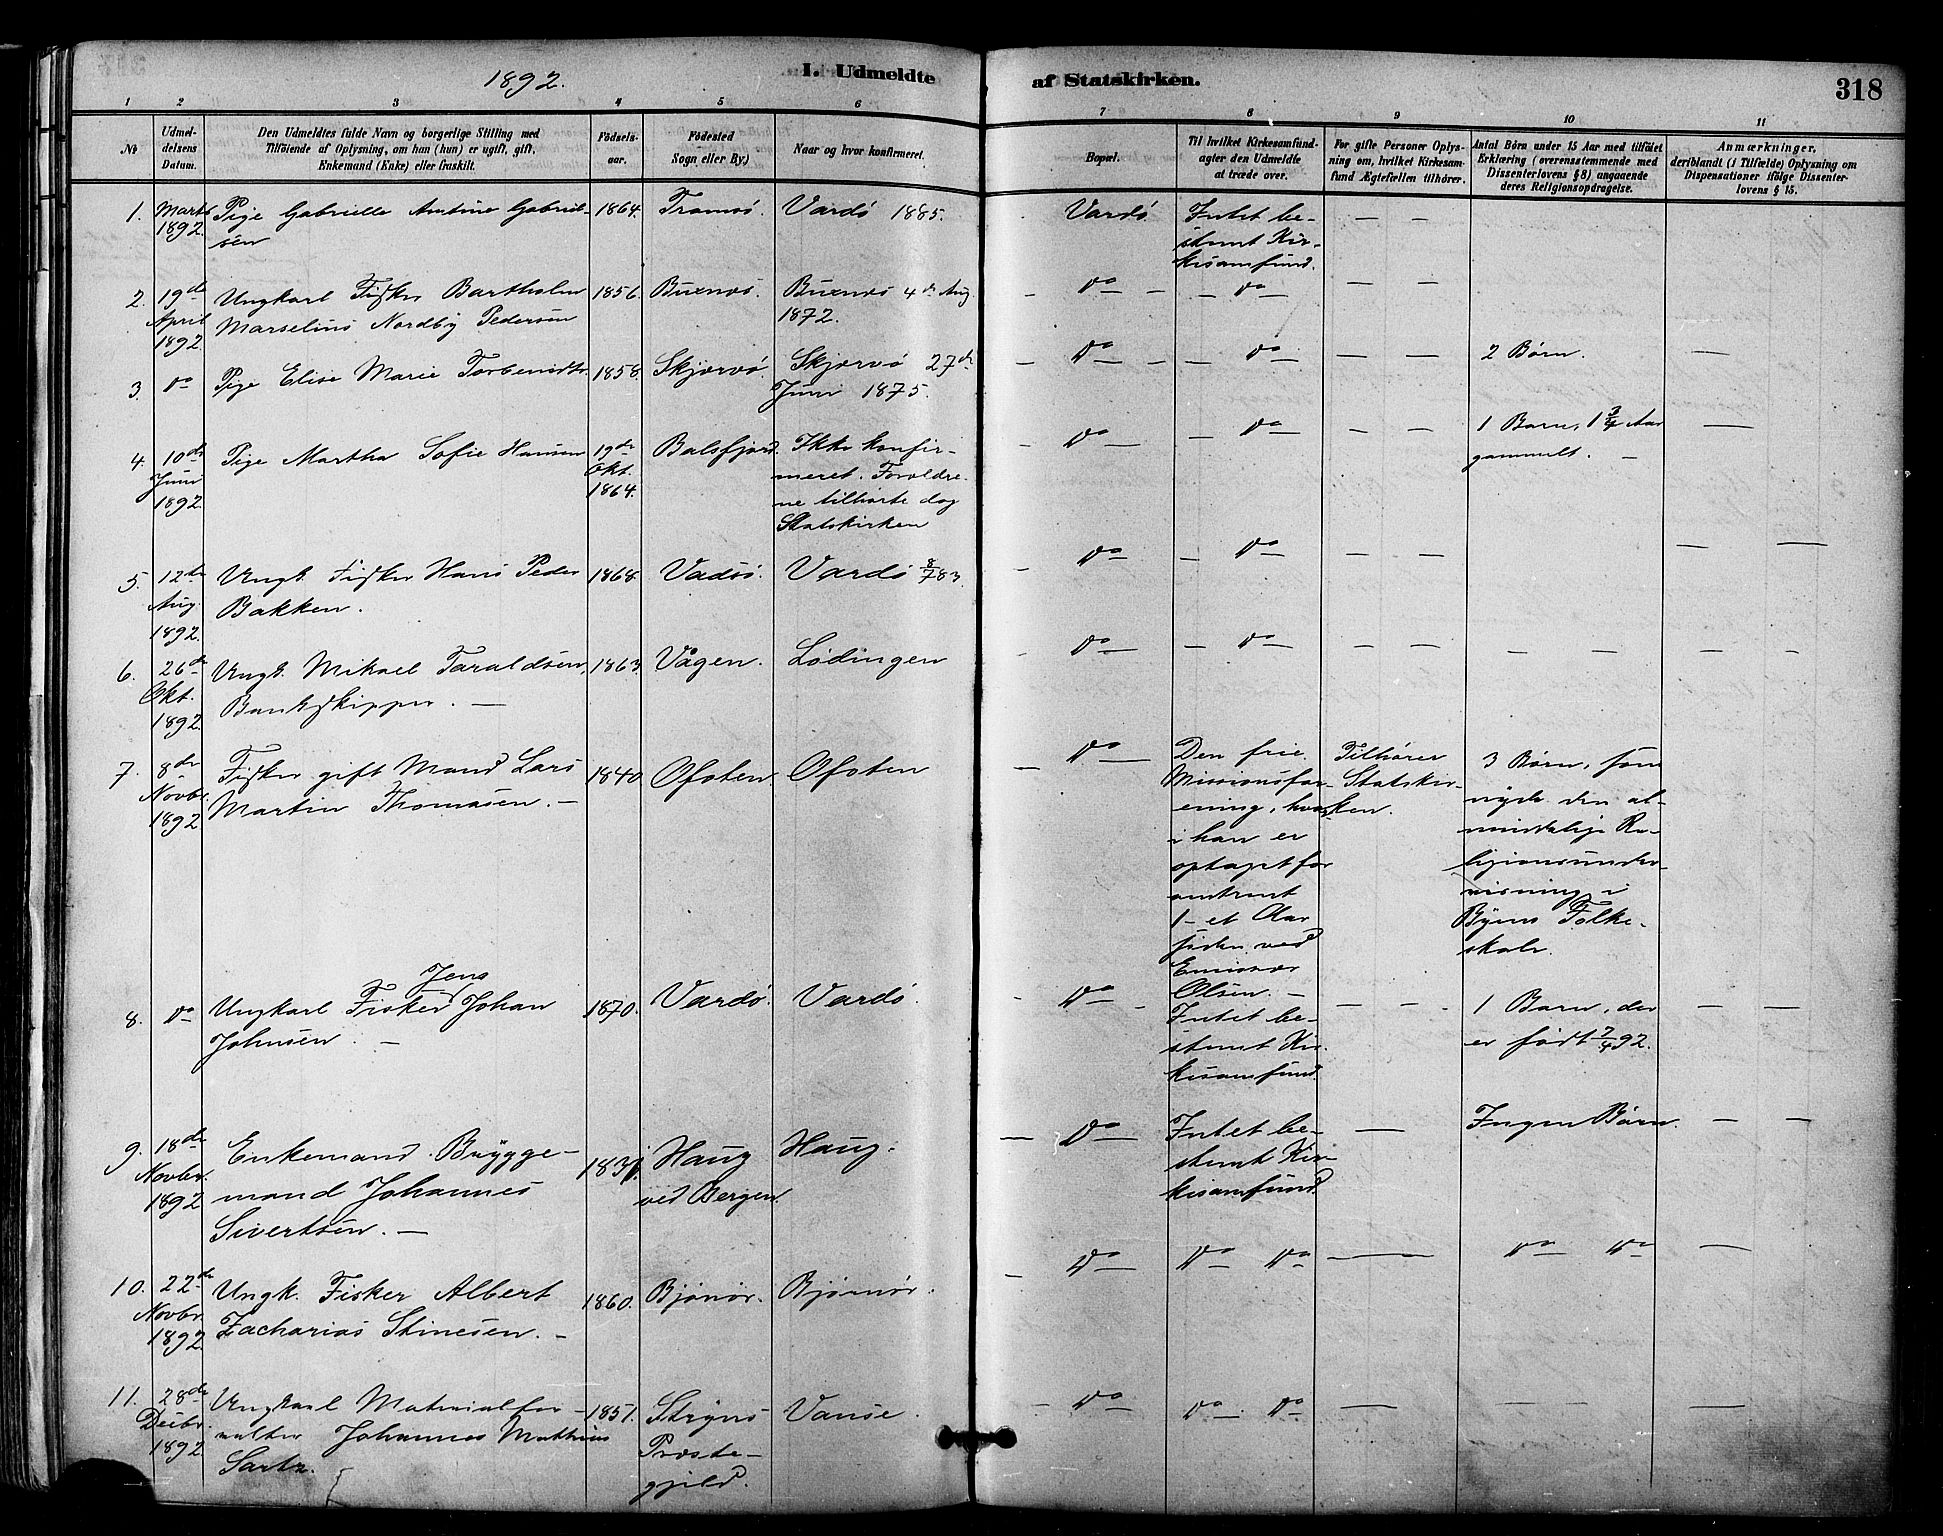 1892.
I. Udmeldte
af Statskirken.
318
1 2 3 4 5 6 7 8 9 10 11
No
Udmel-
delsens
Datum.
Den Udmeldtes fulde Navn og borgerlige Stilling med
Tilföiende af Oplysning, om han (hun) er ugift, gift,
Enkemand (Enke) eller fraskilt.
Födsels-
aar.
Födested
(Sogn eller By.)
Naar og hvor konfirmeret.
Bopæl.
Til hvilket Kirkesamfund
agter den Udmeldte
at træde over.
For gifte Personer Oplys-
ning om, hvilket Kirkesam-
fund Ægtefællen tilhörer.
Antal Börn under 15 Aar med tilföiet
Erklæring (overensstemmende med
Dissenterlovens § 8) angaaende
deres Religionsopdragelse.
Anmærkninger,
deriblandt (i Tilfælde) Oplysning om
Dispensationer ifölge Dissenter-
lovens § 15.
1.
Marts
1892.
Pige Gabrielle Antine Gabriel-
sen
1864.
Tromsö.
Vardö 1885.
Vardö
Intet be-
stemt Kir-
kesamfund.
— —
2.
19de
April
1892.
Ungkarl Fisker Bartholm
Marselius Nordby Pedersen
1856.
Buxnæs.
Buxnæs 4de Aug
1872.
— Do —
— Do —
— —
3.
Do
Pige Elise Marie Torbenidtr.
1858.
Skjærvö.
Skjærvö 27de
Juni 1875.
— Do —
— Do —
— —
2 Börn.
—
4.
10de
Juni
1892.
Pige Martha Sofie Hansen
19de
Okt.
1864.
Balsfjord.
Ikke konfir-
meret. Forældre-
ne tilhörte dog
Statskirken
— Do —
— Do —
— —
1 Barn, 1 3/4 Aar
gammelt. —
—
5.
12de
Aug.
1892.
Ungk. Fisker Hans Peder
Bakken.
1868.
Vadsö.
Vardö 8/7 83.
Do
— Do —
— —
— —
6.
26de
Okt.
1892.
Ungk. Mikael Taraldsen,
Bankskipper. —
1863.
Vågen.
Lödingen
— Do —
— Do —
— —
— —
— —
7.
8de
Novbr.
1892
Fisker gift Mand Lars
Martin Thomasen. —
1840
Ofoten.
Ofoten
— Do —
Den frie
Missionsfor-
ening, hvor-
i han er
optaget for
omtrent
1 - et Aar
siden ved
Emissær
Olsen. —
Tilhörer
Statskir-
ken.
3 Börn, som
nyde den al-
mindelige Re-
ligionsunder-
visning i
Byens Folke-
skole.
8.
Do
Jens
Ungkarl Fisker Johan
Johnsen. —
1870.
Vardö.
Vardö.
— Do —
Intet be-
stemt Kir-
kesamfund.
— —
1 Barn, der
er födt 7/4 92.
— —
9.
18de
Novbr.
1892
Enkemand. Brygge-
mand Johannes
Sivertsen. —
1831.
Haug
ved Bergen.
Haug.
— Do —
Intet be-
stemt Kir-
kesamfund
—
Ingen Börn.
— —
10.
22de
Novbr.
1892
Ungk. Fisker Albert
Zacharias Stinesen. —
1860.
Bjönör.
Bjönör.
— Do —
Do Do
—
Do Do
—
11.
28de
Decbr.
1892
Ungkarl Materialfor-
valter Johannes Mathias
Sartz.
1851.
Stryns
Præste-
gjeld.
Vanse.
— Do —
Do Do
—
— —
—